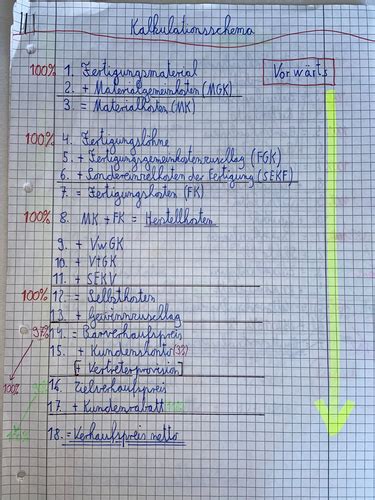 Kalkulationsschema
Vorwärts
100% 1. Fertigungsmaterial
2. + Materialgemeinkosten (MGK)
3. = Materialkosten (MK)
100% 4. Fertigungslöhne
5. + Fertigungsgemeinkostenzuschlag (FGK)
6. + Sondereinzelkosten der Fertigung (SEKF)
7. = Fertigungskosten (FK)
100% 8. MK + FK = Herstellkosten
9. + VwGK
10. + VtGK
11. + SEKV
100% 12. = Selbstkosten
13. + Gewinnzuschlag
97% 14. = Barverkaufspreis
15. + Kundenskonto (3%)
[+ Vertreterprovision]
100%
16. Zielverkaufspreis
17. + Kundenrabatt
18. = Verkaufspreis netto